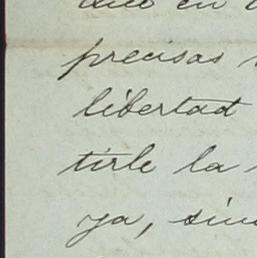 en
precisas
libertad
tirle la
ya, sin